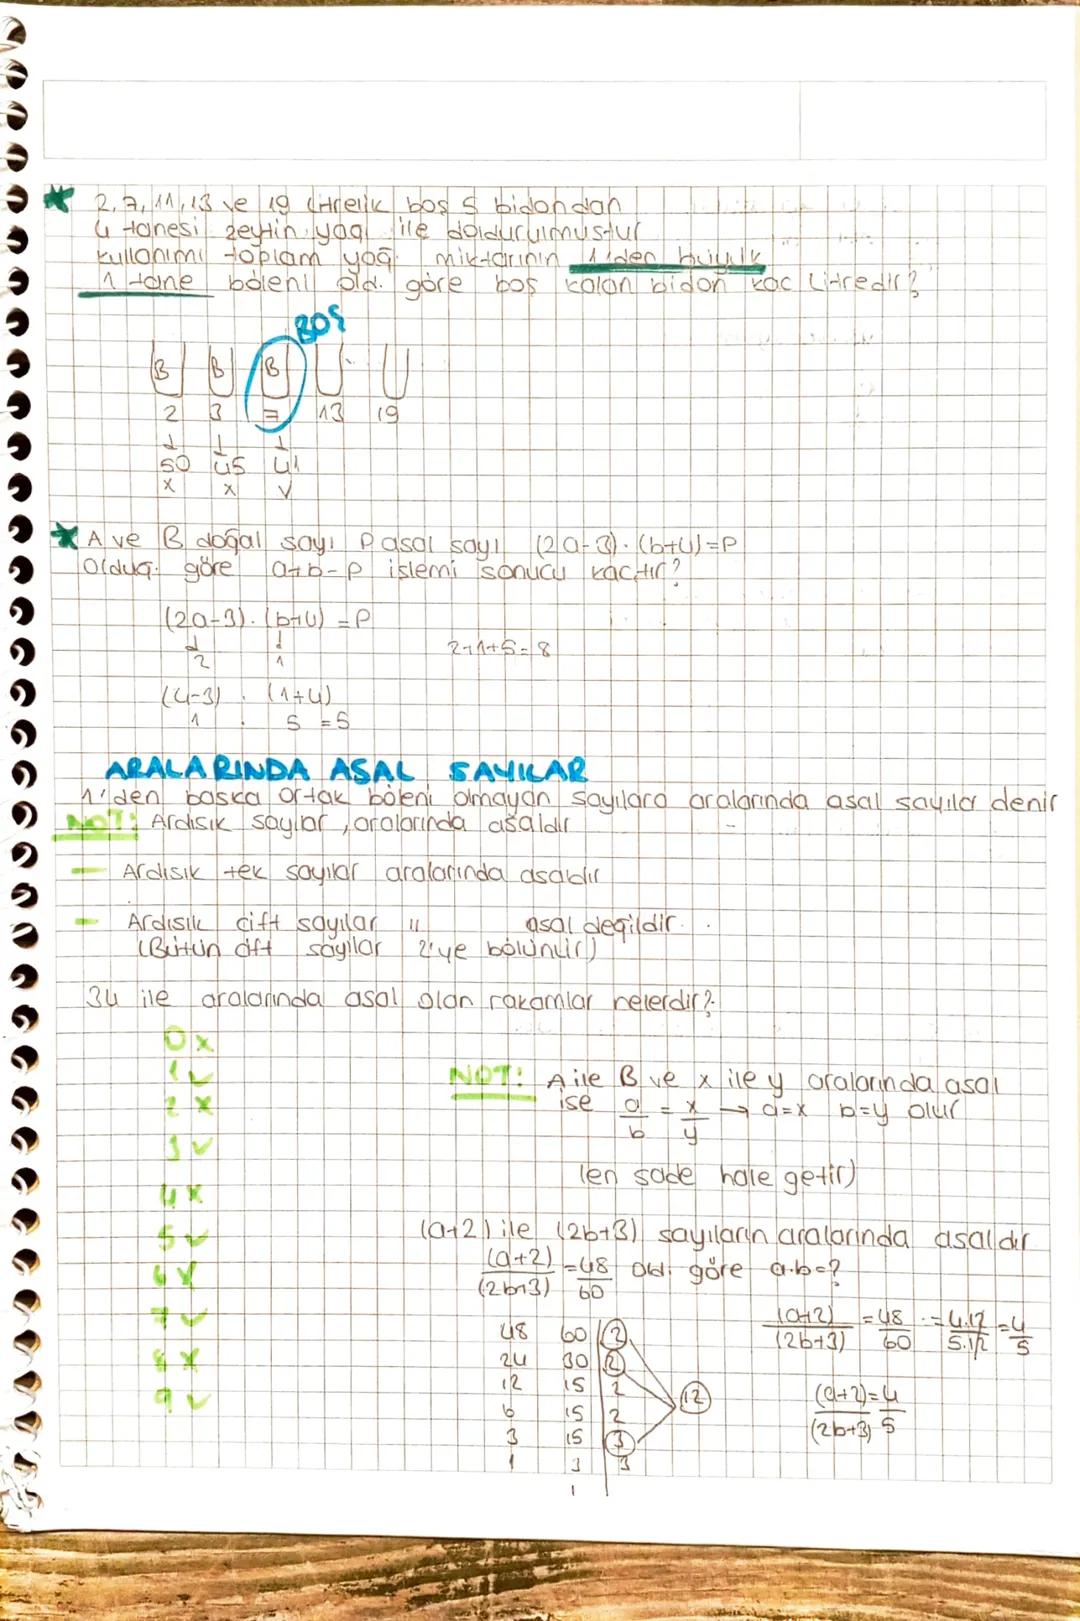 2, 7, 11, 13 ve 19 litrelik boş 5 bidondan
4 tanesi zeytin yağı ile doldurulmuştur
kullanımı toplam yağ miktarının 1'den büyük
1 tane böleni old. göre boş kalan bidon kaç Litredir?
BOŞ
B B B
2 3 7 13 19
↓ ↓ ↓
50 45 41
x x v
A ve B doğal sayı P asal sayı (2a-3).(b+4)=P
Olduğ. göre a+b-p işlemi sonucu kaçtır?
(2a-3).(b+4)=P
↓ ↓
2 1
2+1+5=8
(4-3) . (1+4)
1 . 5 =5
ARALARINDA ASAL SAYILAR
1'den başka ortak böleni olmayan sayılara aralarında asal sayılar denir
NOT: Ardışık sayılar, aralarında asaldır
- Ardışık tek sayılar aralarında asaldır
- Ardışık çift sayılar " asal değildir.
(Bütün çift sayılar 2'ye bölünür)
34 ile aralarında asal olan rakamlar nelerdir?
0 x
1 v
2 x
3 v
4 x
5 v
6 x
7 v
8 x
9 v
NOT: A ile B ve x ile y aralarında asal
ise a/b = x/y → a=x b=y olur
(en sade hale getir)
(a+2) ile (2b+3) sayıların aralarında asaldır
(a+2)/(2b+3) = 48/60 old. göre a.b=?
48 60 | 2
24 30 | 2
12 15 | 2
6 15 | 2
3 15 | 3
1 3 | 3
1
12
(a+2)/(2b+3) = 48/60 = 4.12/5.12 = 4/5
(a+2)/(2b+3) = 4/5